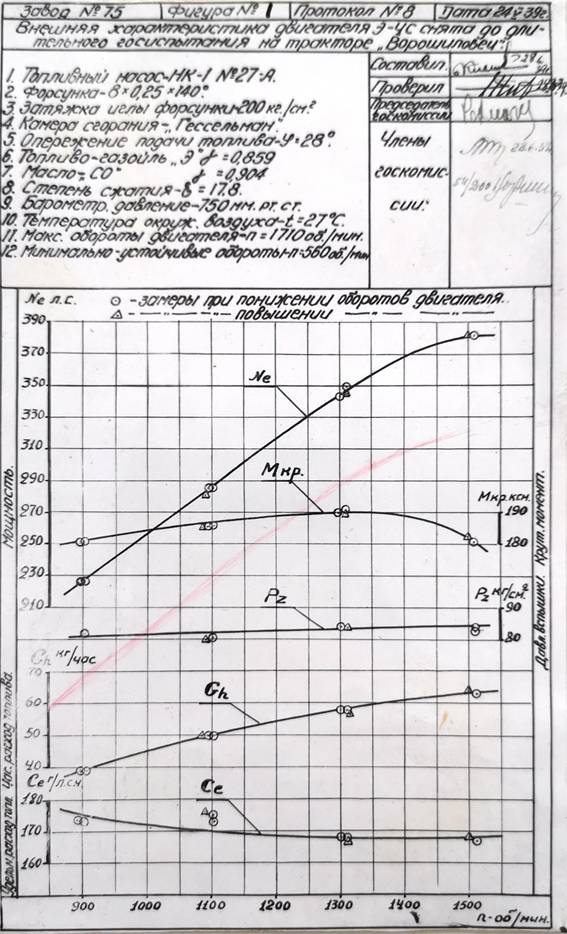 Завод № 75 Фигура № 1 Протокол № 8 Дата 24 V 39г.
Внешняя характеристика двигателя Э-4С снята до дли-
тельного госиспытания на тракторе „Ворошиловец“.
1. Топливный насос-НК-1 № 27-А.
2. Форсунка-6×0,25×140°
3. Затяжка иглы форсунки-200 кг/см²
4. Камера сгорания-„Гессельман“.
5. Опережение подачи топлива-φ=28°.
6. Топливо-газойль „Э“ γ=0,859
7. Масло-„СО“ γ=0,904
8. Степень сжатия-δ=17.8.
9. Барометр. давление-750 мм. рт. ст.
10. Температура окруж. воздуха-t=27°С.
11. Макс. обороты двигателя-n=1710 об./мин.
12. Минимально-устойчивые обороты-n-560 об./мин
Составил
Проверил
Председатель
госкомиссии
Члены
госкомис-
сии:
Ne л.с.
⊙ -замеры при понижении оборотов двигателя.
△ -"- -"- повышении -"- -"-
390
370
350
330
310
290
270
250
230
210
Мощность.
Ne
Мкр.
Мкр. кгм.
190
180
Крут. момент.
Pz
Pz кг/см²
90
80
Давл. вспышки.
Gh кг/час
70
60
50
40
Час. расход топлива.
Gh
Ce г/л.с.ч.
180
170
160
Удельн. расход топл.
Ce
900 1000 1100 1200 1300 1400 1500
n-об/мин.